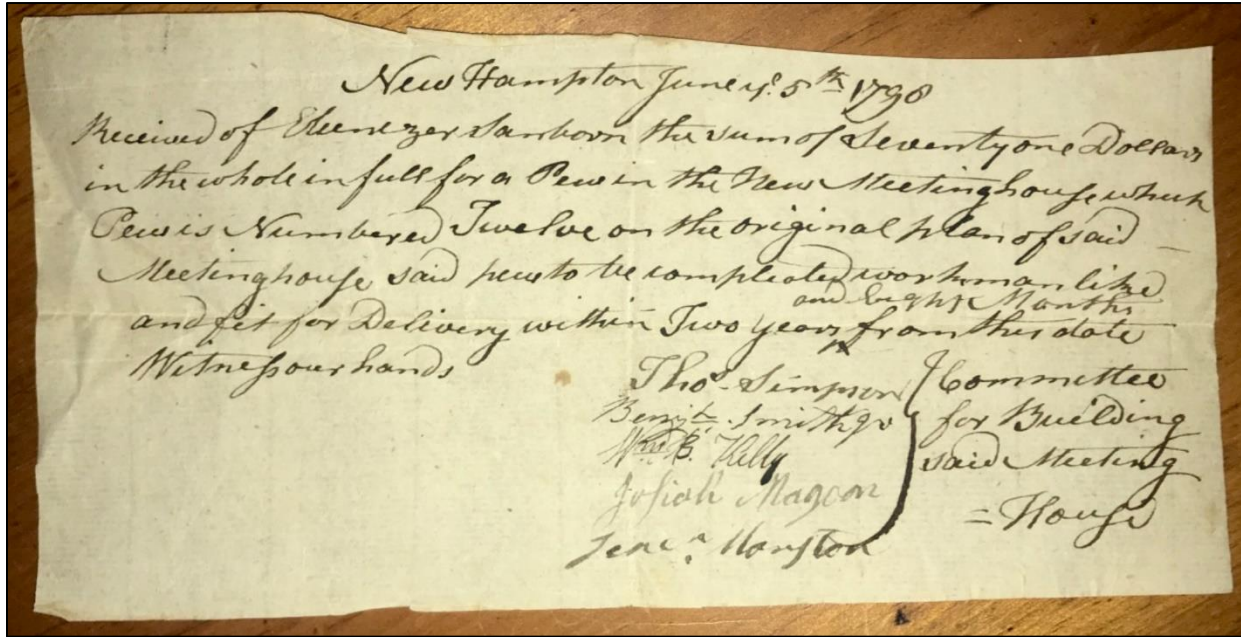 New Hampton June ye. 5th 1798
Received of Ebenezer Sanborn the Sum of Seventy one Dollars
in the whole in full for a Pew in the New Meetinghouse which
Pew is Numbered Twelve on the original plan of said
Meetinghouse said pew to be compleated workman like
and Eight Months
and fit for Delivery within Two years from this date
Witness our hands
Thos. Simpson
Benjn. Smith Jr
Wm. B. Kelly
Josiah Magoon
Marston
Committee
for Building
said Meeting
= House